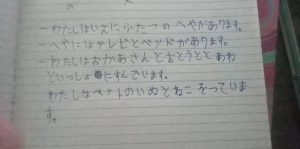 ーわたしはいえにふたつのへやがあります。
ーへやにはテレビとベッドがあります。
ーわたしはおかあさんとおとうととあね
といっしょにすんでいます。
わたしはペットのいぬとねこをっていま
す。